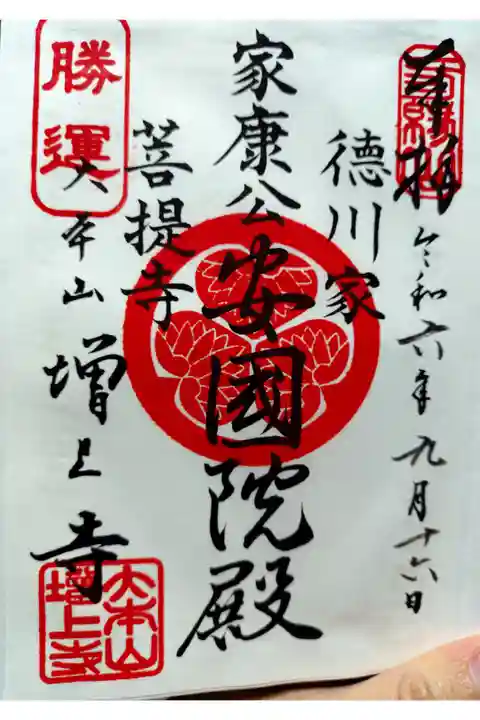 奉拝
令和六年九月十六日
徳川家
家康公安國院殿
菩提寺
勝運
大本山増上寺
大本山
増上寺